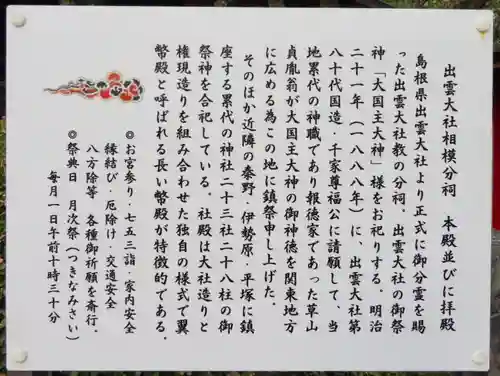 出雲大社相模分祠　本殿並びに拝殿
島根県出雲大社より正式に御分霊を賜
った出雲大社教の分祠、出雲大社の御祭
神「大国主大神」様をお祀りする。明治
二十一年（一八八八年）に、出雲大社第
八十代国造・千家尊福公に請願して、当
地累代の神職であり報徳家であった草山
貞胤翁が大国主大神の御神徳を関東地方
に広める為この地に鎮祭申し上げた。
そのほか近隣の秦野・伊勢原・平塚に鎮
座する累代の神社二十三社二十八柱の御
祭神を合祀している。社殿は大社造りと
権現造りを組み合わせた独自の様式で翼
幣殿と呼ばれる長い幣殿が特徴的である。
◎お宮参り・七五三詣・家内安全
縁結び・厄除け・交通安全
八方除等　各種御祈願を斎行。
◎祭典日　月次祭（つきなみさい）
毎月一日午前十時三十分